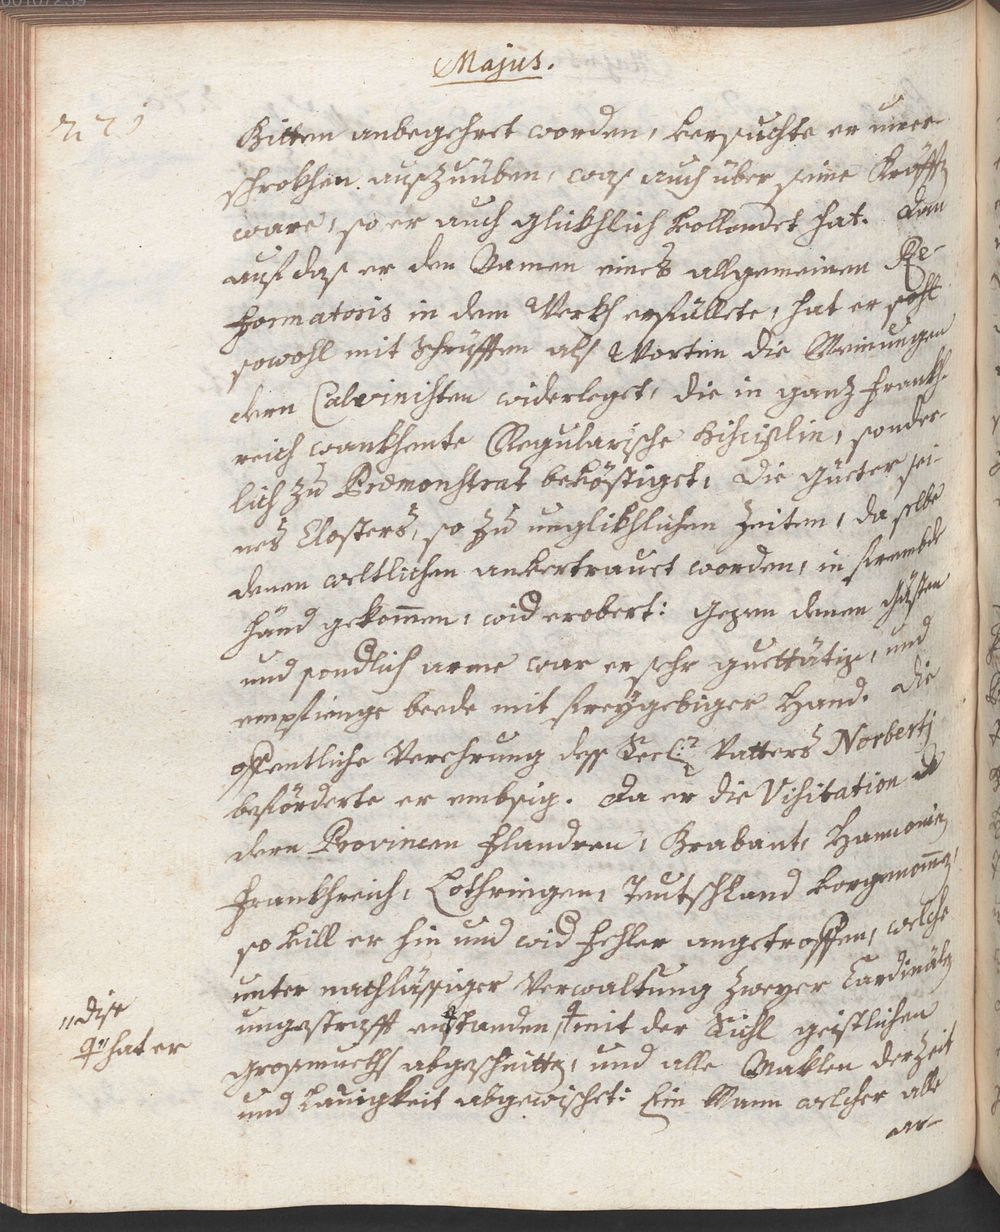 Majus.
Bitten anbegehret worden, versuchte er uner-
schrokhen auszuüben, was auch über seine Kräfft
ware, so er auch gliklich vollendet hat. Dan
auf das er den Namen eines allgemeinen Re-
formatoris in dem Werkh erfüllete, hat er
sowohl mit Schrüfften als Worten die Meinungen
deren Calvinisten widerleget, die in ganz Frankh-
reich wankhente Regularische Disciplin, sonder-
lich zu Praemonstrat bevöstiget, die Güeter sei-
nes Closters, so zu unglikhlichen Zeiten, da selbe
denen weltlichen anvertrauet worden, in frembde
händ gekommen, wid erobert: Gegen denen Gästen
und sondlich arme war er sehr guettätig, und
empfienge beede mit freygebiger Hand. Die
offentliche Verehrung dess Seel: Vatters Norbertj
beförderte er embsig. Da er die Visitation
deren Provincen Flandren, Brabant, Hannonien
Frankhreich, Lothringen, Teutschland vorgenommen,
so vill er hin und wid Fehler angetroffen, welche
unter nachlässiger Verwaltung zweyer Cardinälen
ungestrafft enstanden, mit der Sichl geistlichen
„dise
hat er
grosmueths abgeschnitten, und alle Maklen der Zeit
und Lauigkeit abgewischet: Ein Mann welcher alle